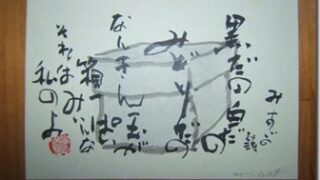 みすゞの
黒だの白だの
みどりだの
なんきん玉が
箱一っぱい
それはみいんな
私のよ